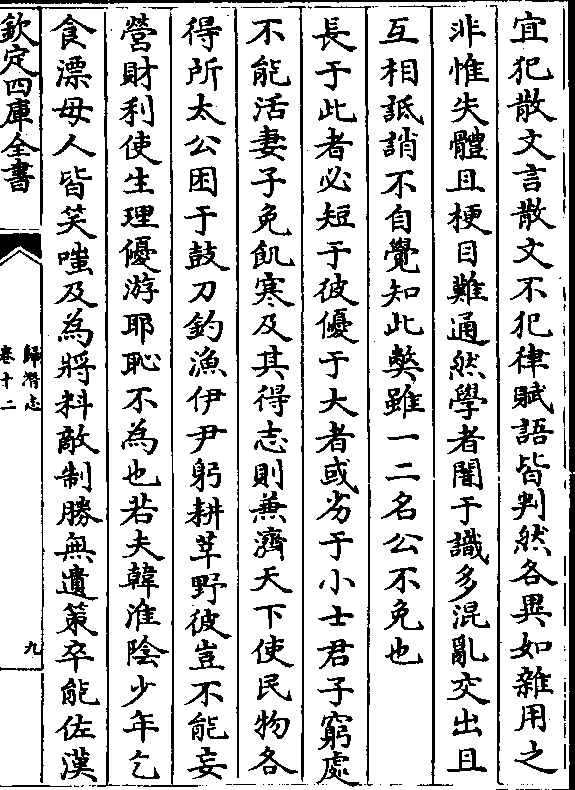 宜犯散文言散文不犯律賦語皆判然各異如雜用之
非惟失體且梗目難通然學者闇于識多混亂交出且
互相詆誚不自覺知此弊雖一二名公不免也
長于此者必短于彼優于大者或劣于小士君子窮處
不能活妻子免飢寒及其得志則兼濟天下使民物各
得所太公困于鼓刀釣漁伊尹躬耕莘野彼豈不能妄
營財利使生理優游耶恥不為也若夫韓淮陰少年乞
食漂母人皆笑嗤及為將料敵制勝無遺策卒能佐漢
欽定四庫全書
歸潛志
卷十二
九